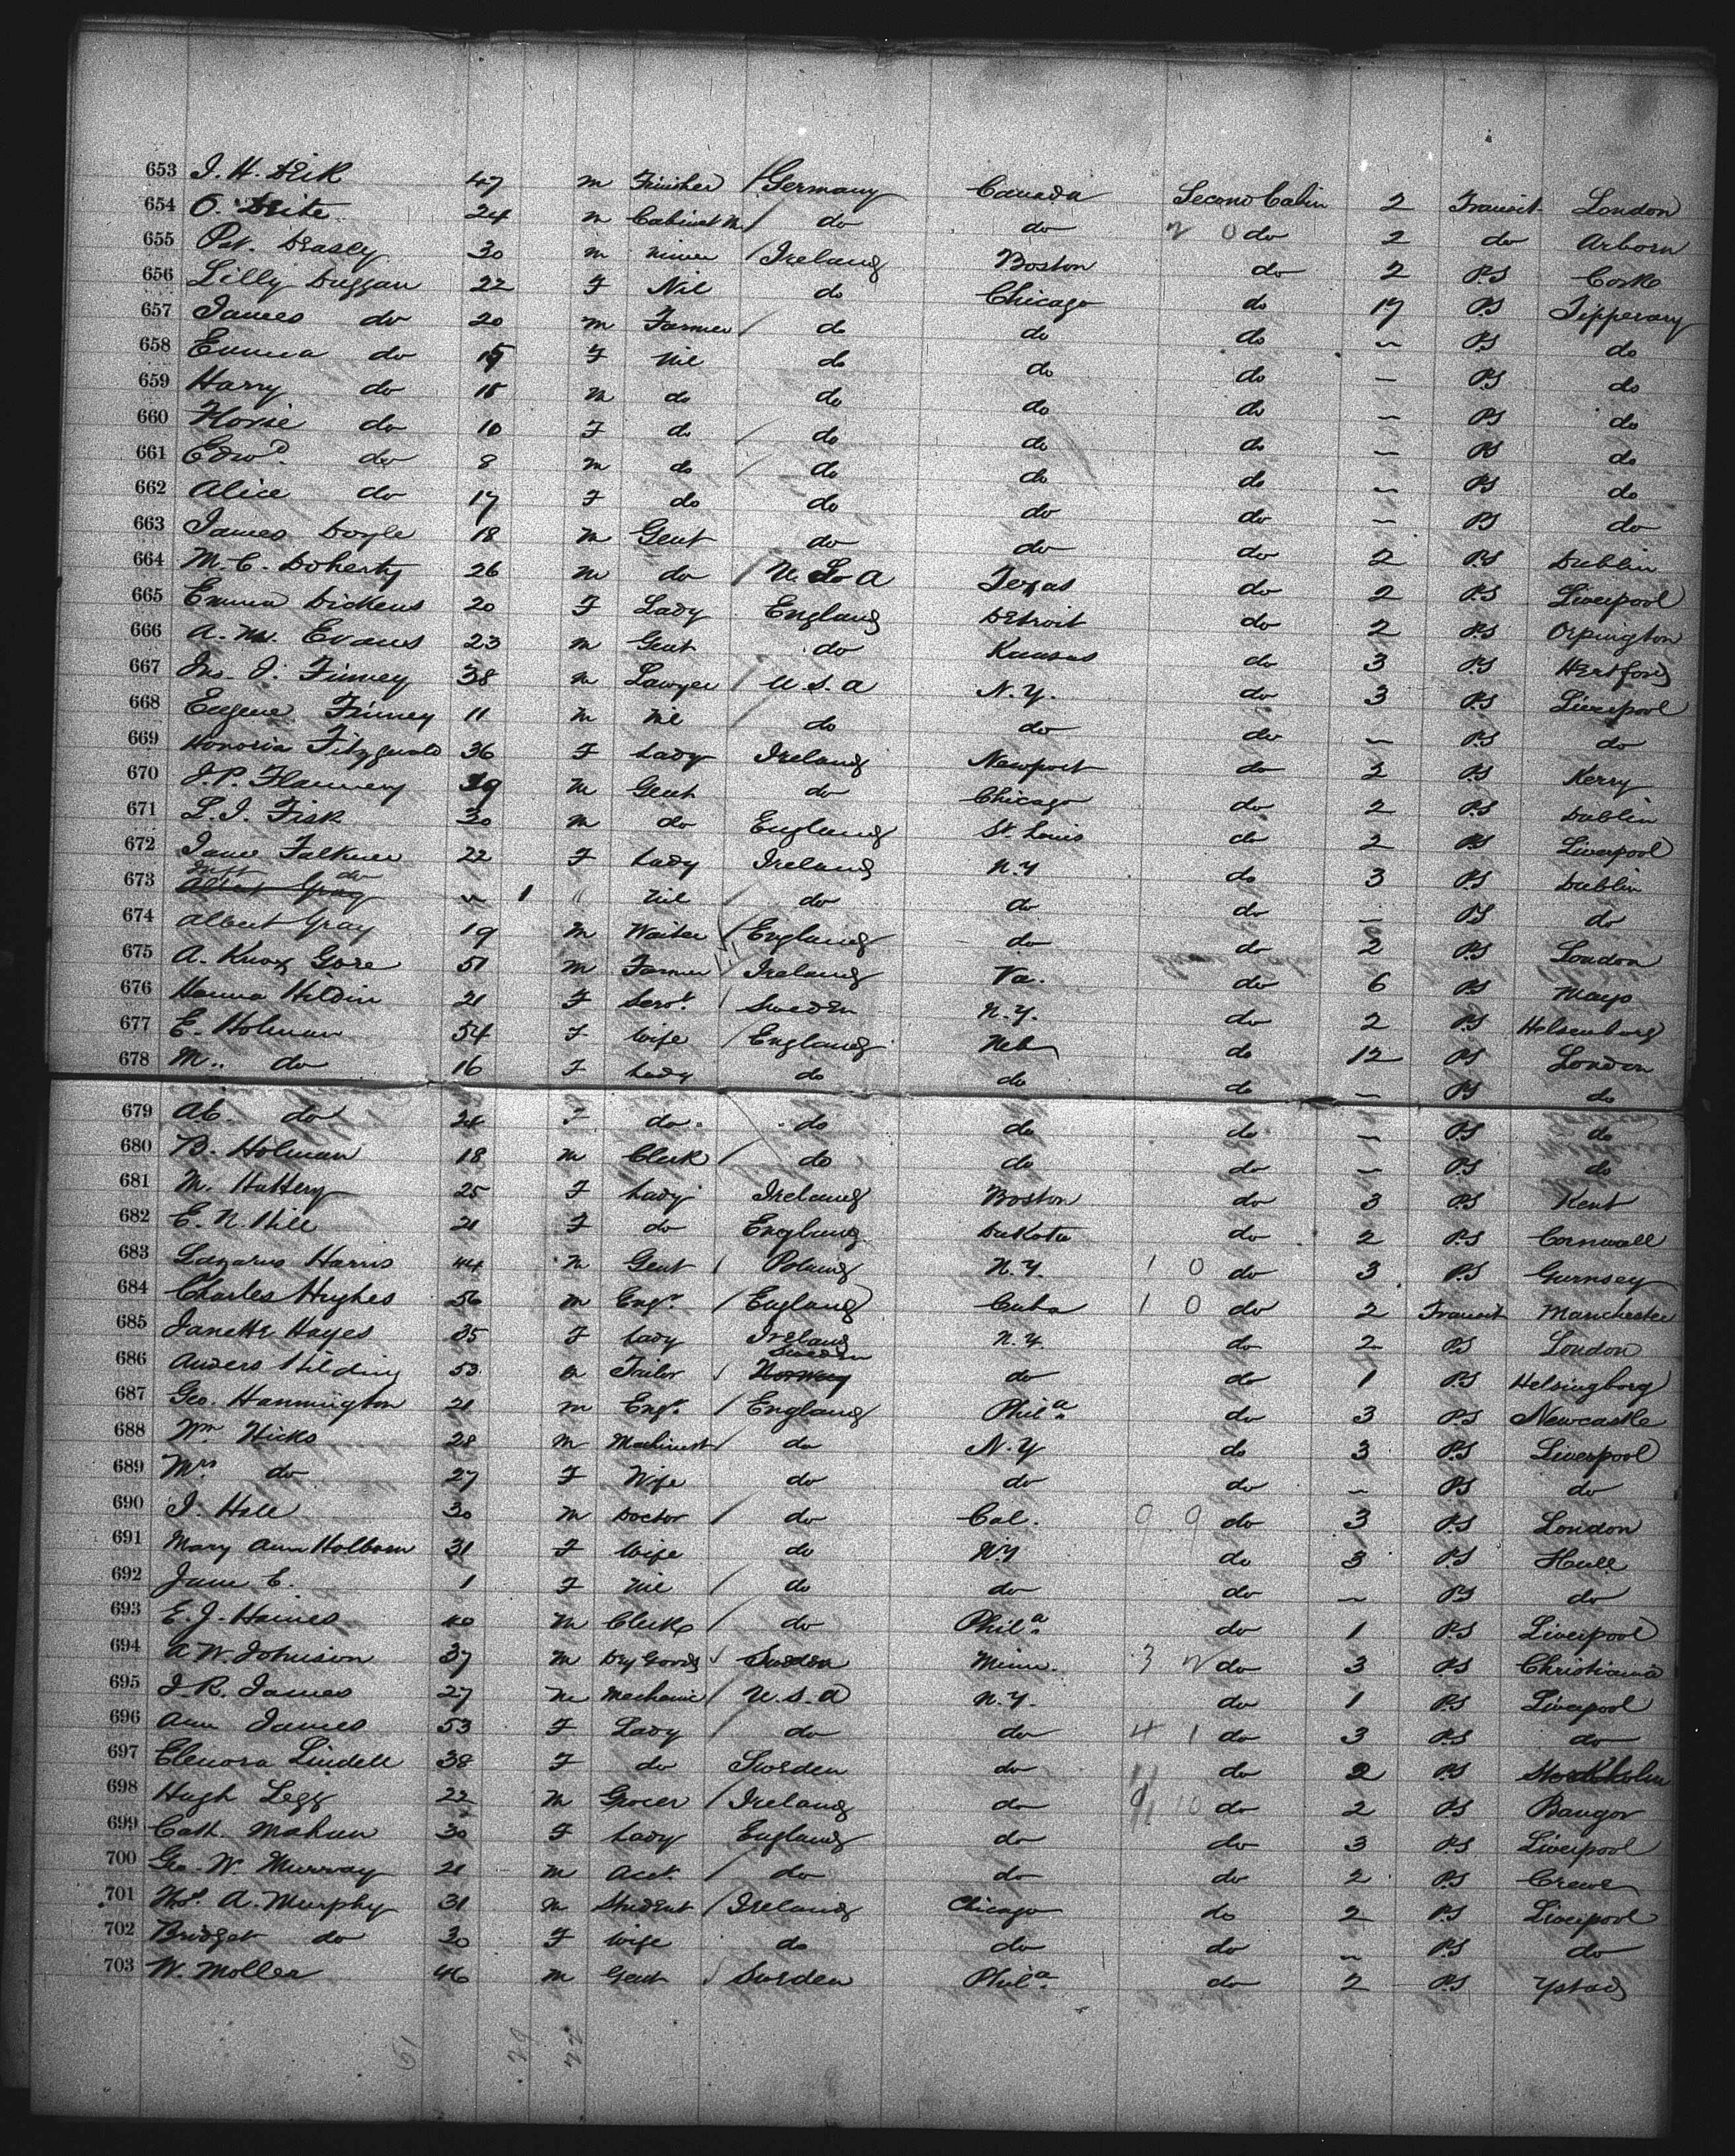 653 J. H. Deik 47 m Finisher Germany Canada Second Cabin 2 Transit London
654 O. Drite 24 m Cabinet M do do do 2 do Arborn
655 Pat. Deasly 30 m miner Ireland Boston do 2 P.S Cork
656 Lilly Duggan 22 F Nil do Chicago do 17 P.S Tipperary
657 James do 20 m Farmer do do do " P.S do
658 Emma do F Nil do do do — P.S do
659 Harry do m do do do do — P.S do
660 Florie do 10 F do do do do — P.S do
661 Edwd. do 8 m do do do do — P.S do
662 Alice do 17 F do do do do — P.S do
663 James Doyle 18 m Gent do do do 2 P.S Dublin
664 M. C. Doherty 26 m do U. S. A Texas do 2 P.S Liverpool
665 Emma Dickens 20 F Lady England Detroit do 2 P.S Orpington
666 A. M. Evans 23 m Gent do Kansas do 3 P.S Hertford
667 Jno. J. Finney 38 m Lawyer U. S. A N. Y. do 3 P.S Liverpool
668 Eugene Finney 11 m Nil do do do — P.S do
669 Honoria Fitzgerald 36 F Lady Ireland Newport do 2 P.S Kerry
670 J. P. Flannery m Gent do Chicago do 2 P.S Dublin
671 L. J. Fisk 30 m do England St. Louis do 2 P.S Liverpool
672 Jane Falkner 22 F Lady Ireland N.Y do 3 P.S Dublin
Inft do
673 Albert Gray " 1 " Nil do do do — P.S do
674 Albert Gray 19 m Waiter England do do 2 P.S London
675 A. Knox Gore 51 m Farmer Ireland Va. do 6 P.S Mayo
676 Hanna Hildin 21 F Servt. Sweden N. Y. do 2 P.S Helsenborg
677 E. Holman 54 F Wife England Neb do 12 P.S London
678 M.. do 16 F Lady do do do — P.S do
679 do F do do do do — P.S do
680 B. Holman 18 m Clerk do do do — P.S do
681 M. Hattery 25 F Lady Ireland Boston do 3 P.S Kent
682 E. N. Hill 21 F do England Dakota do 2 P.S Cornwall
683 Lazarus Harris 44 m Gent Poland N. Y. 1 0 do 3 P.S Gurnsey
684 Charles Hughes 56 m Engr. England Cuba 1 0 do 2 Transit Manchester
685 Janette Hayes 35 F Lady Ireland N. Y. do 2 P.S London
Sweden
686 Anders Hilding 53 m Tailor Norway do do 1 P.S Helsingborg
687 Geo. Hannington 21 m Engr. England Phila. do 3 P.S Newcastle
688 Wm Hicks 28 m Machinist do N. Y do 3 P.S Liverpool
689 Mrs do 27 F Wife do do do — P.S do
690 J. Hall 30 m Doctor do Cal. 9 9 do 3 P.S London
691 Mary Ann Holborn 31 F Wife do N.Y do 3 P.S Hull
692 Jane E. 1 F Nil do do do — P.S do
693 E. J. Haines 40 m Clerk do Phila. do 1 P.S Liverpool
694 A W. Johnson 37 m Dry Goods Sweden Minn. 3 2 do 3 P.S Christiania
695 J. R. James 27 m Mechanic U. S. A N. Y. do 1 P.S Liverpool
696 Ann James 53 F Lady do do 4 1 do 3 P.S do
697 Elenora Lindell 38 F do Sweden do do 2 P.S Stockholm
698 Hugh Legg 22 m Grocer Ireland do 10 do 2 P.S Bangor
699 Cath. Mahun 30 F Lady England do do 3 P.S Liverpool
700 Geo. W. Murray 21 m Acct. do do do 2 P.S Crewe
701 Thos. A. Murphy 31 m Student Ireland Chicago do 2 P.S Liverpool
702 Bridget do 30 F Wife do do do — P.S do
703 W. Moller 46 m Gent Sweden Phila. do 2 P.S Ystad